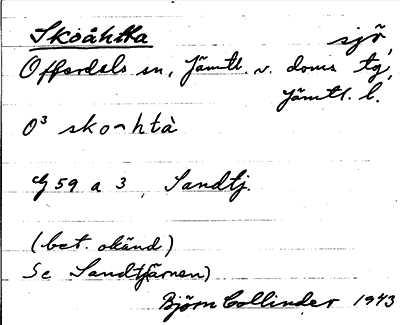 Skoåhtta sjö,
Offerdals sn, Jämtl. v. doms tg,
Jämtl. l.
O³ sko⌢htà
G 59 a 3, Sandtj.
(bet. okänd)
Se Sandtjärnen)
Björn Collinder 1943